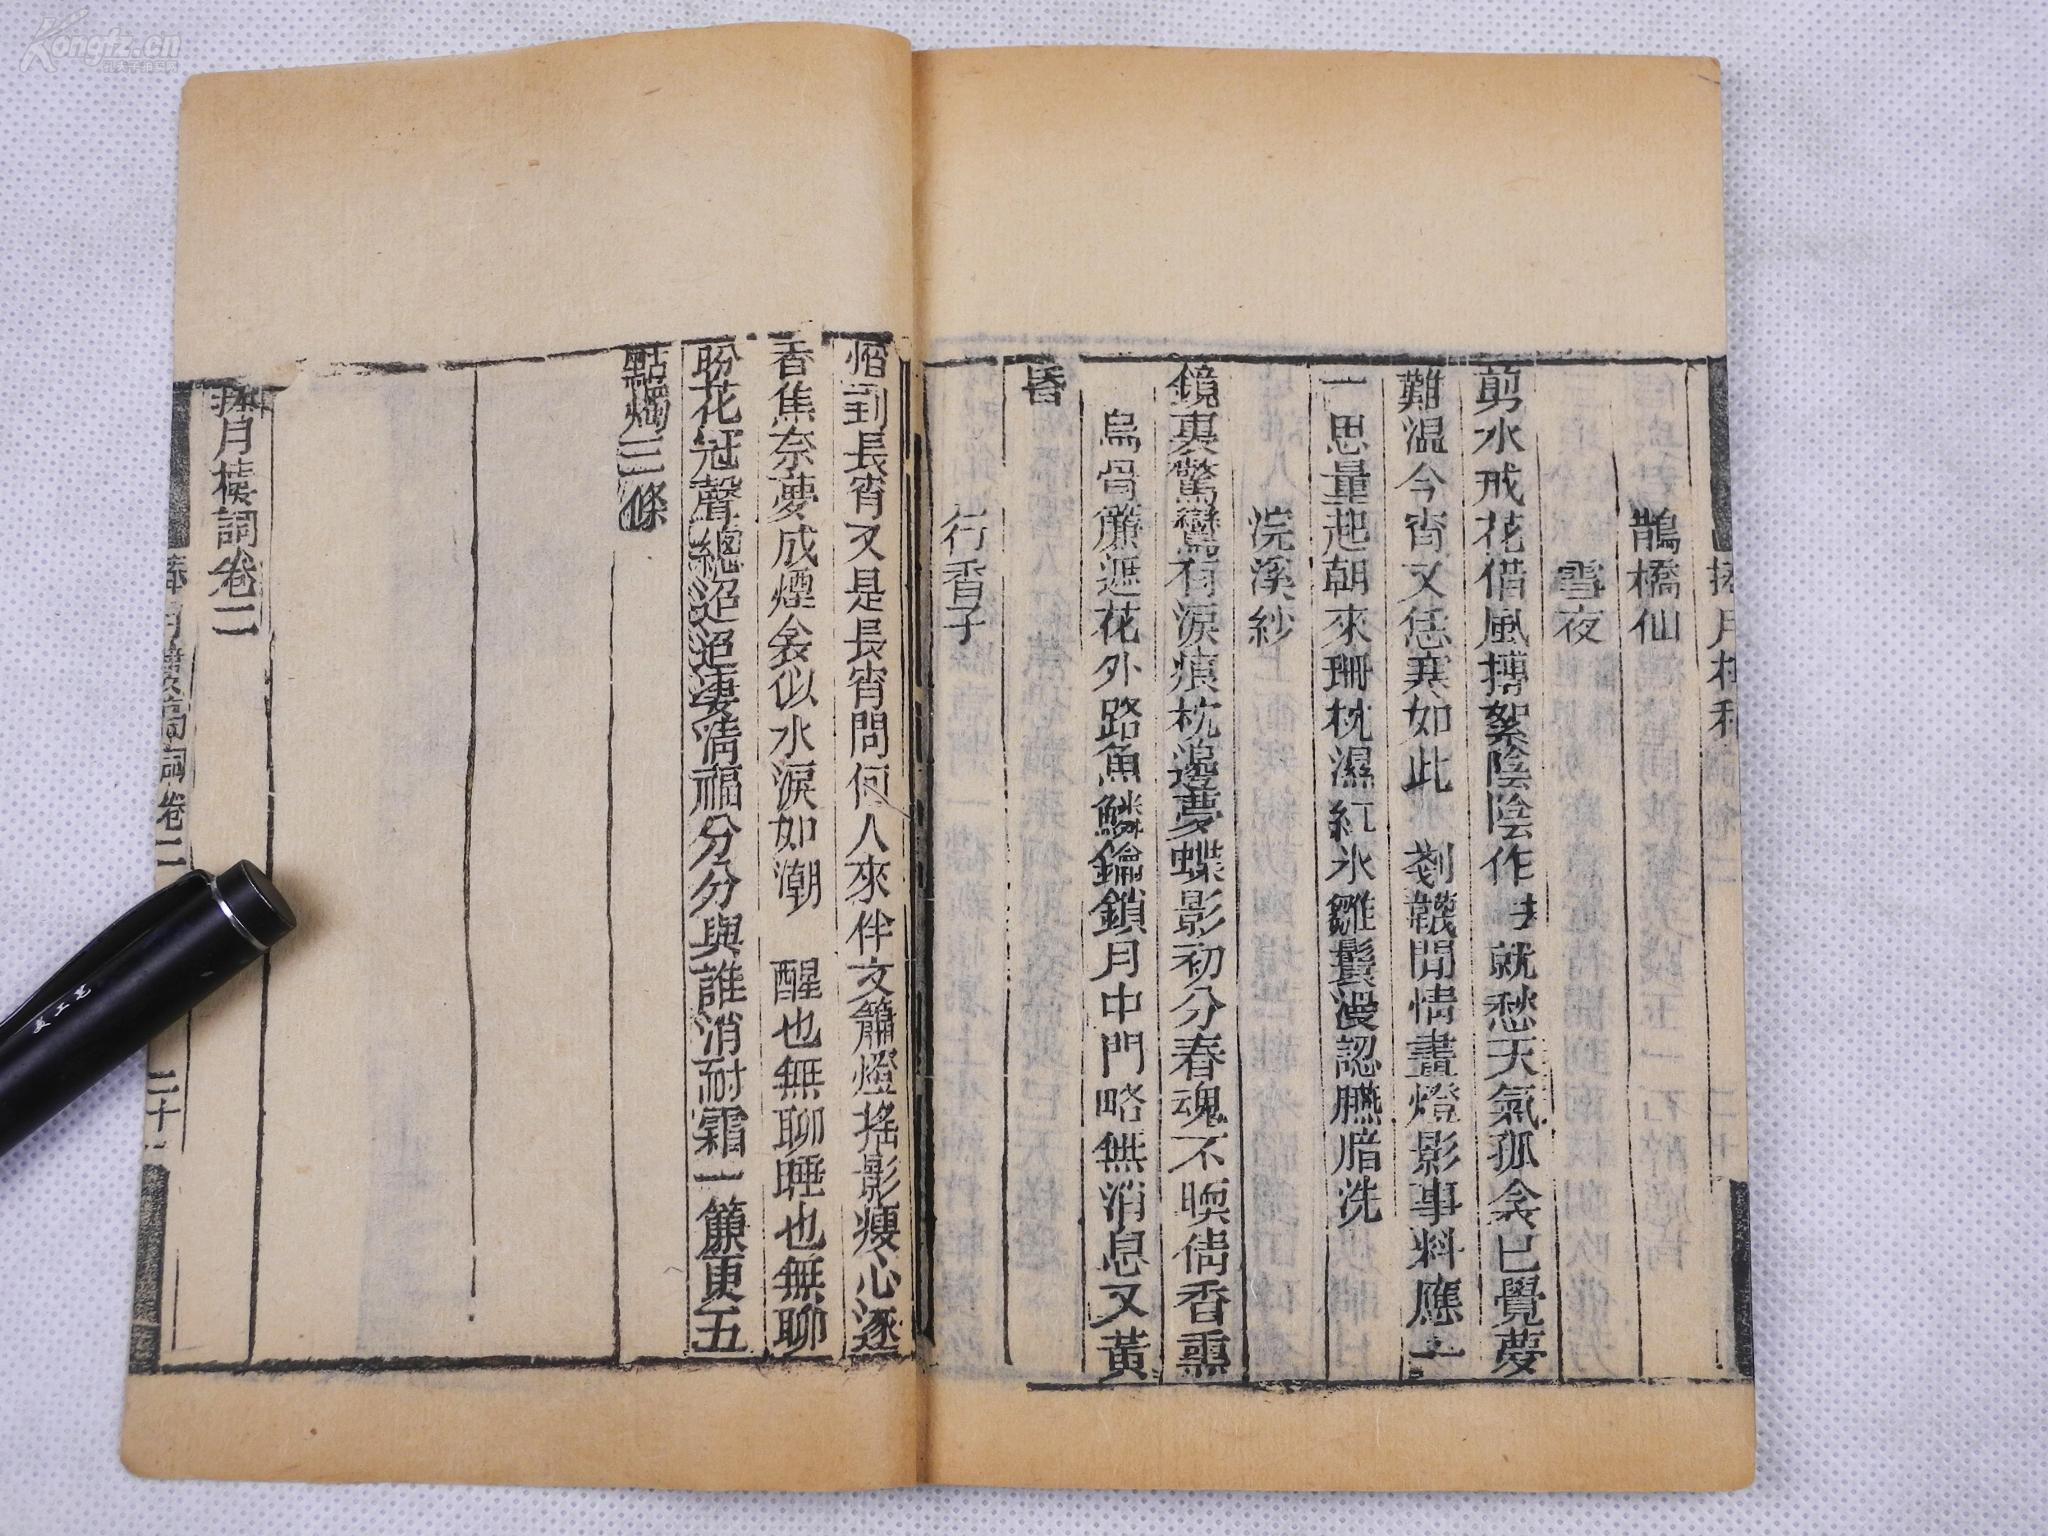 鵲橋仙
雪夜
剪水戒花借風搏絮陰陰作 就愁天氣孤衾已覺夢
難溫今宵又恁寒如此 剗韈閒情畫燈影事料應一
一思量起朝來珊枕濕紅冰雛鬟漫認臙脂洗
浣溪紗
鏡裏驚鸞有淚痕枕邊夢蝶影初分春魂不暝倩香熏
烏骨簾遮花外路魚鱗鑰鎖月中門略無消息又黃
昏
行香子
到長宵又是長宵問何人來伴文簫燈搖影瘦心逐
香焦奈夢成煙衾似水淚如潮 醒也無聊睡也無聊
盼花冠聲總迢迢淒清福分分與誰消耐霜一簾更五
點燭三條
月樓詞卷二
卷二
二十一
Kongfz.cn